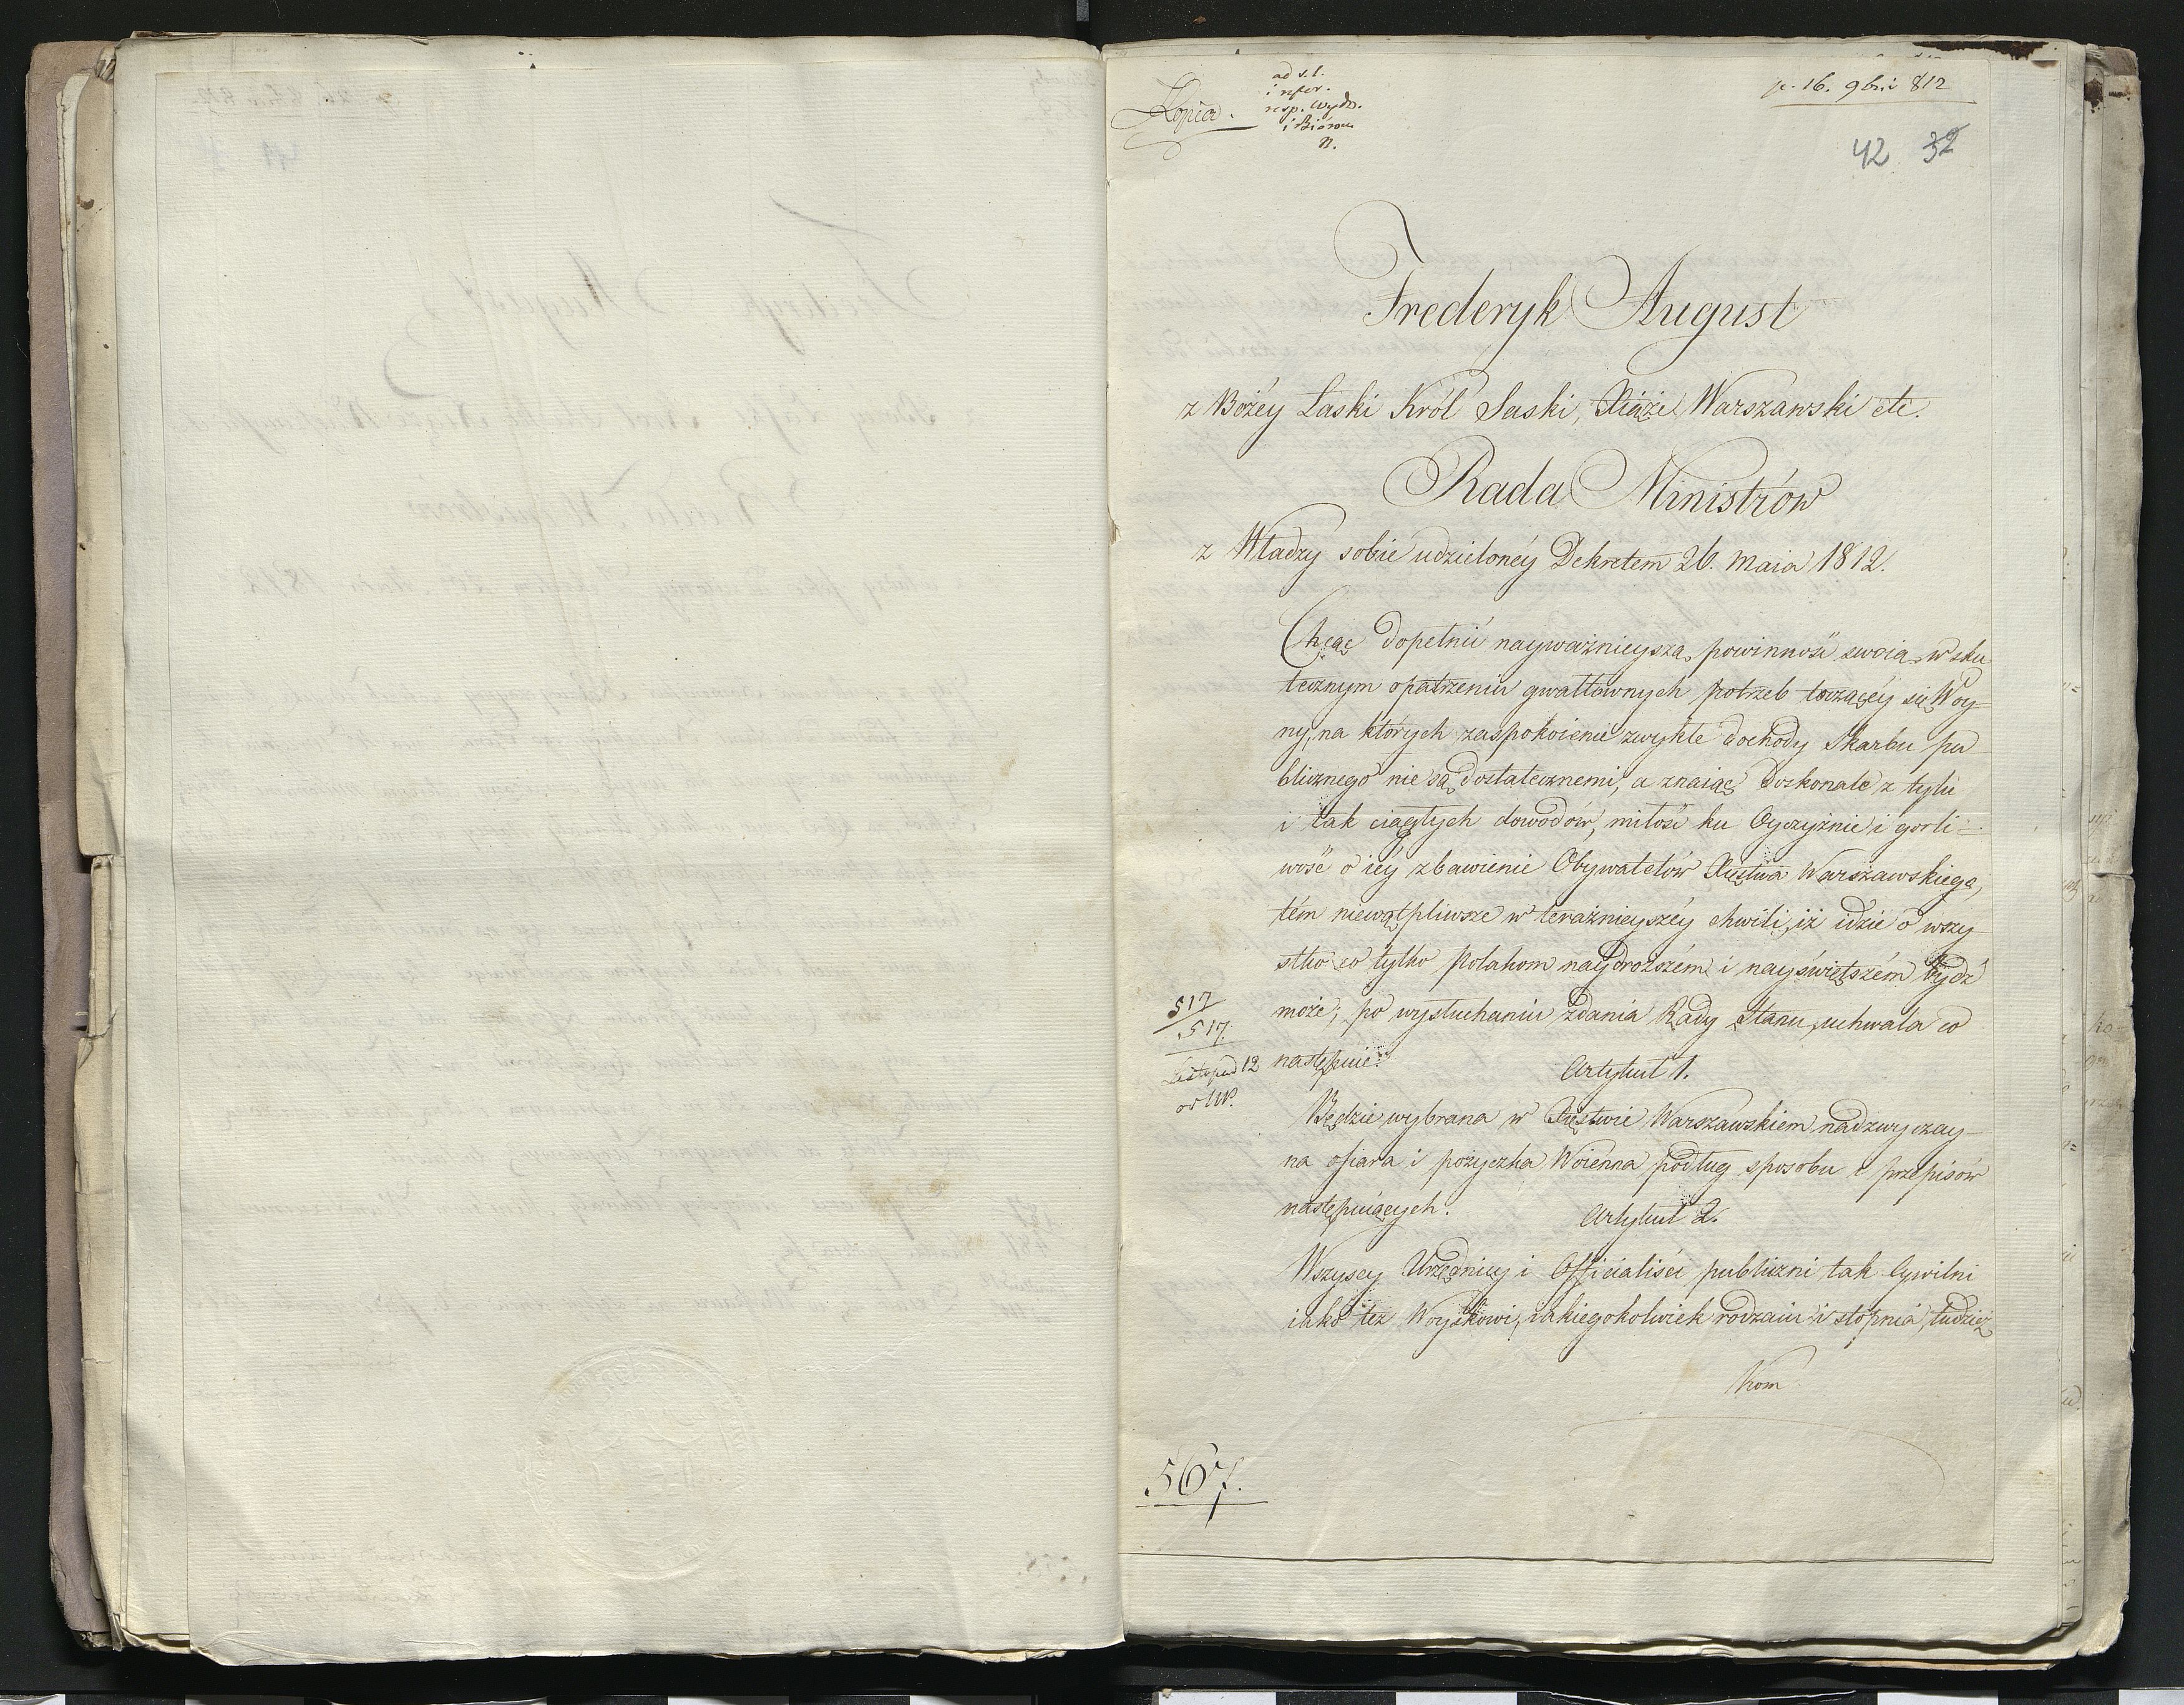 Kopia.
ad s. l.
i refer.
resp. Wydz.
i Biórom
p. 16. 9bri 812
42 32
Frederyk August
z Bożéy Łaski Król Saski, Xiąże Warszawski etc.
Rada Ministrów
z Władzy sobie udzielonéy Dekretem 26. Maia 1812.
Chcąc dopełnić nayważnieyszą powinność swoią w sku
tecznym opatrzeniu gwałtownych potrzeb toczącéy się Woy=
ny, na których zaspokoienie zwykłe dochody Skarbu pu
blicznego nie są dostatecznemi, a znaiąc doskonale z tylu
i tak ciągłych dowodów, miłość ku Oyczyźnie i gorli=
wość o iéy zbawienie Obywatelów Xięstwa Warszawskiego,
tém niewątpliwsze w teraźnieyszéy chwili, iż idzie o wszy
stko co tylko Polakom naydroższém i nayświętszém bydź
może; po wysłuchaniu zdania Rady Stanu, uchwala co
następuie:
Artykuł 1.
517
517.
Listopad 12
Będzie wybrana w Xięstwie Warszawskiem nadzwyczay=
na ofiara i pożyczka Woienna podług sposobu i przepisów
następuiących.
Artykuł 2.
Wszyscy Urzędnicy i Officialiści publiczni tak Cywilni
iako też Woyskowi, iakiegokolwiek rodzaiu i stopnia, tudzież
Kom
567.